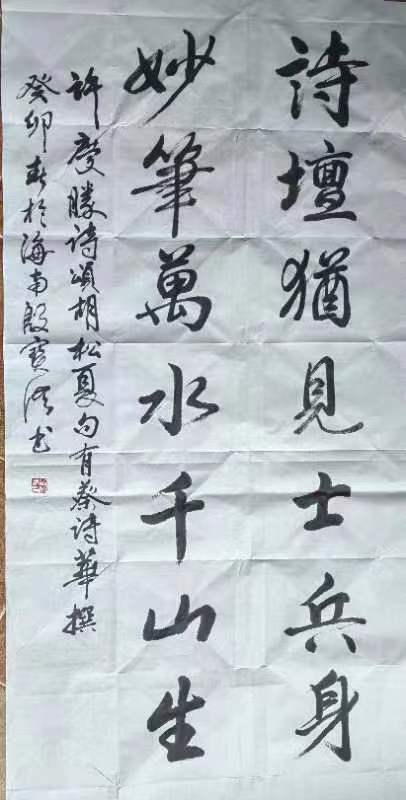 詩壇猶見士兵身
妙筆萬水千山生
許慶勝詩頌胡松夏句有蔡詩華撰
癸卯春於海南殷寶洪书